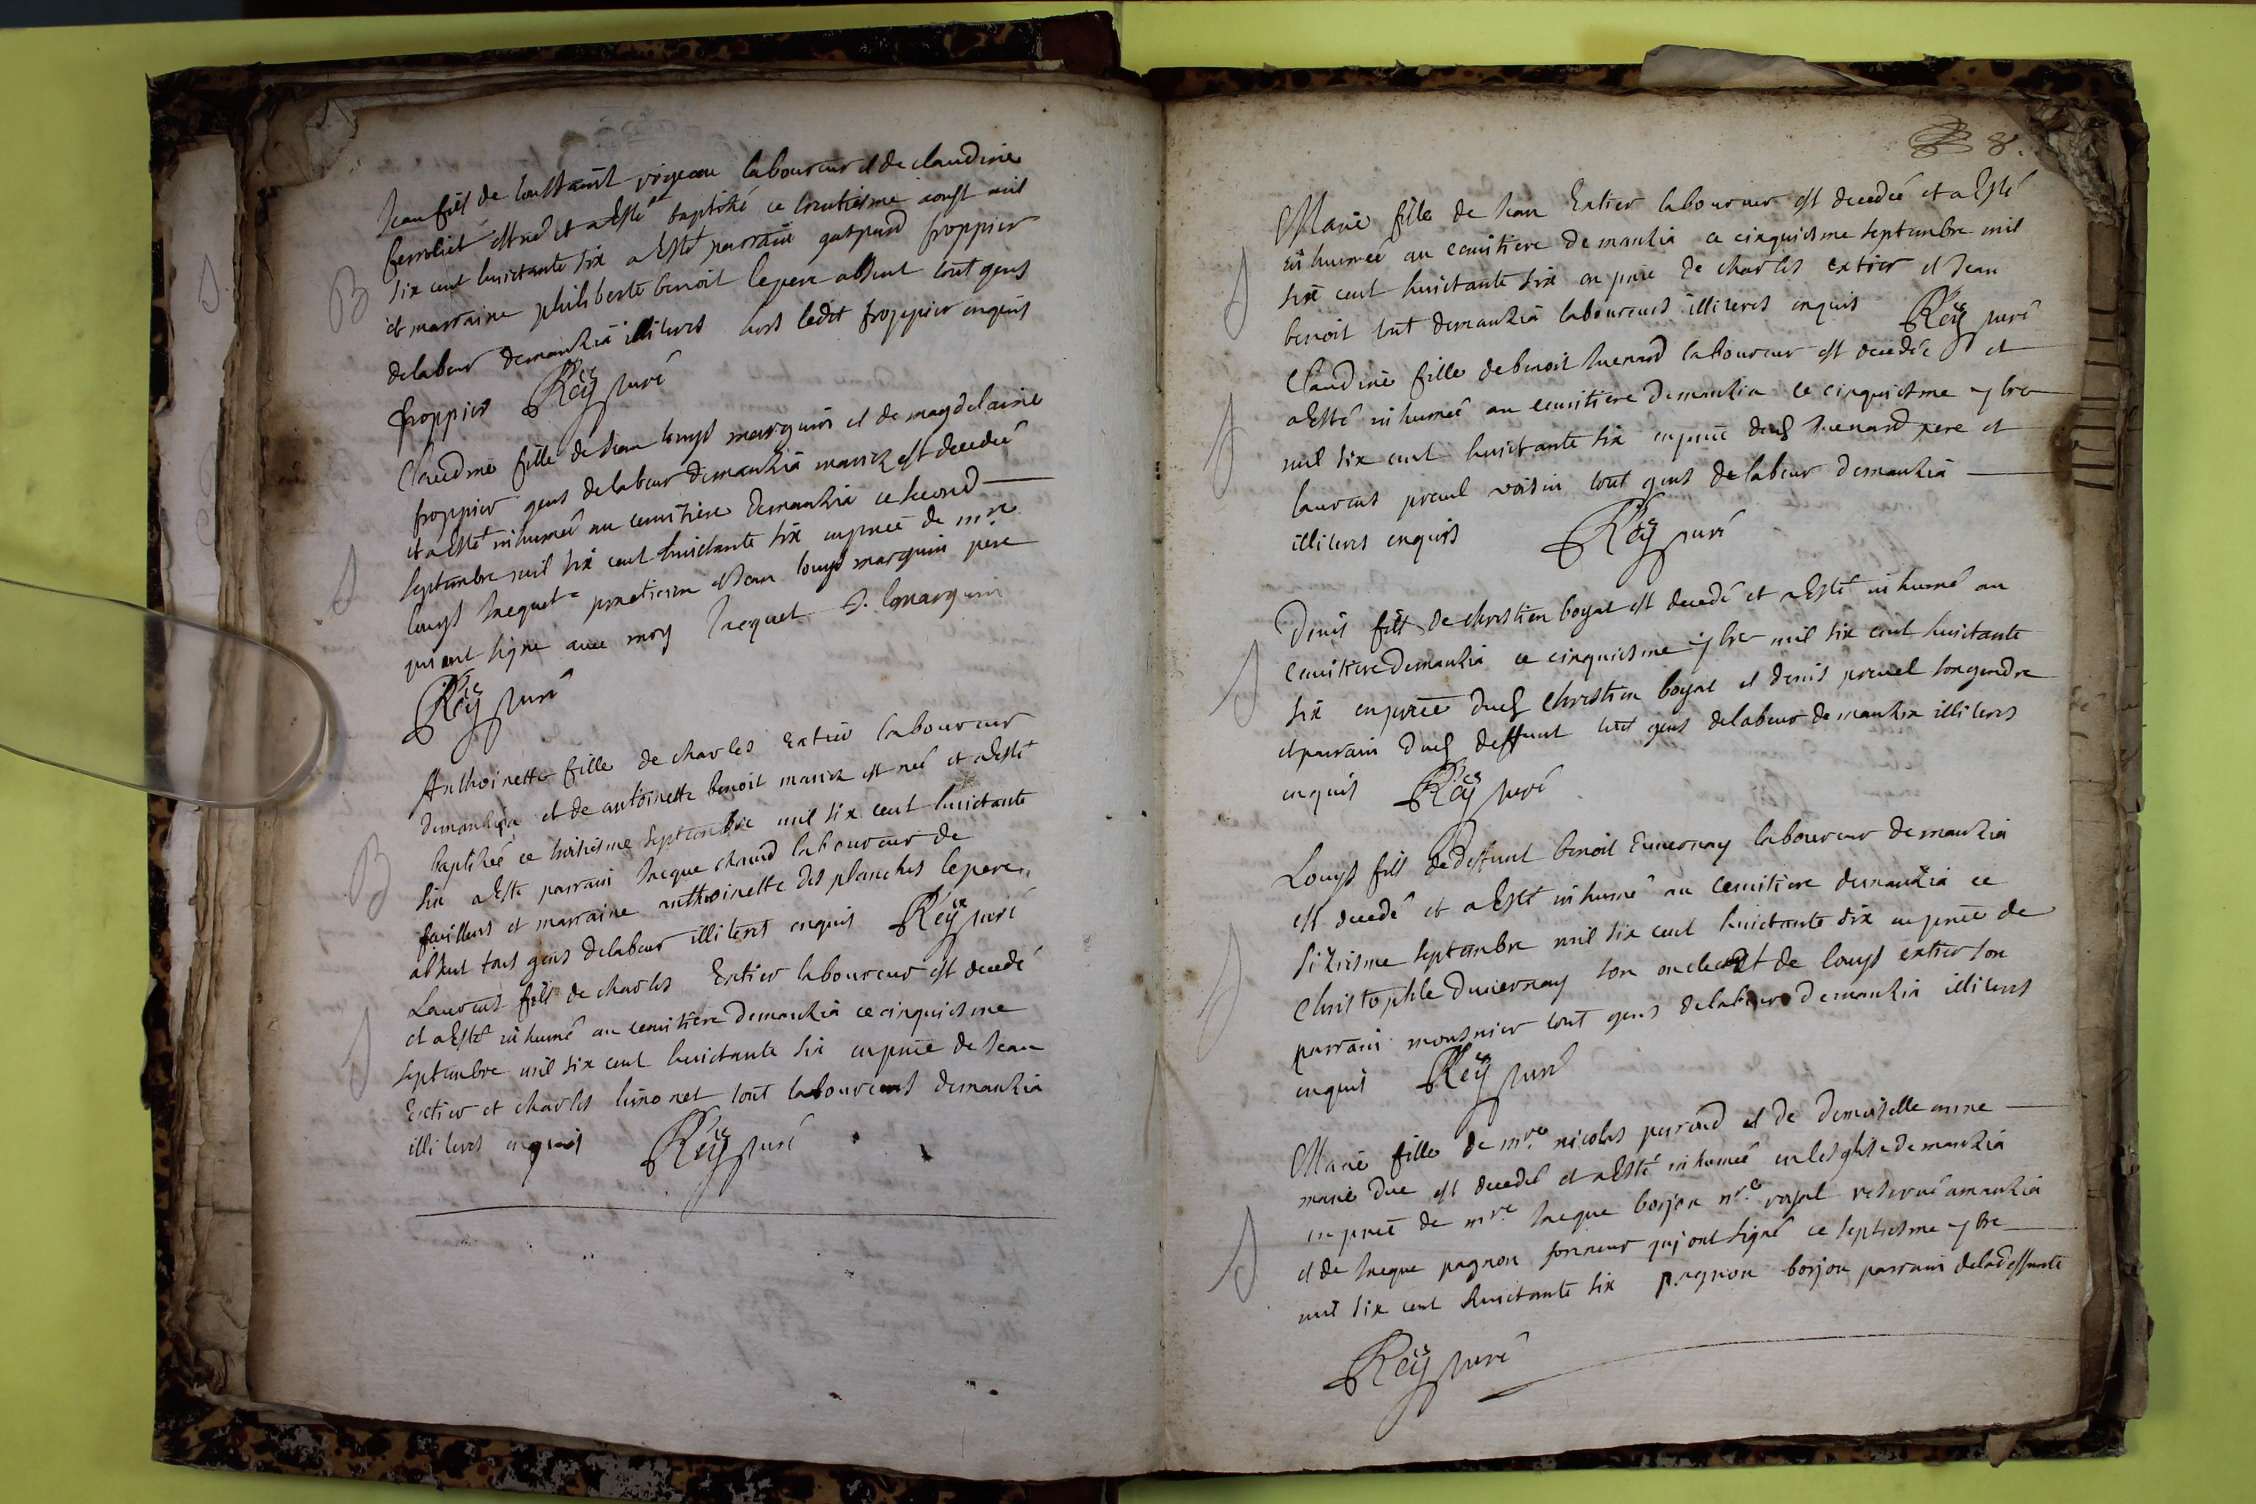 B
Jean fils de Toussainct vigeau laboureur et de claudine
ferroliet est né et a Esté baptisé ce trentiesme aoust mil
six cent huictante six a Esté parrain gaspard froppier
et marraine philiberte benoit le pere absent tout gens
de labeur de manzia illiteres hors ledit froppier enquis
froppier Reÿ curé
J
Claudine fille de Jean louys marguin et de magdelaine
froppier gens de labeur de manzia mariez est decedeé
et a Esté inhumeé au cemitiere de manzia ce second
septembre mil six cent huictante six en pnce de mre
louys Jacquet practicien et Jean louys marguin pere
qui ont signe avec moy Jacquet J. l marguin
Reÿ curé
B
Anthoinette fille de charles Extier laboureur
de manzia et de antoinette benoit mariez est neé et a Esté
baptiseé ce troisiesme septembre mil six cent huictante
six a Esté parrain Jacque chanud laboureur de
feillens et marraine anthoinette des planches le pere
absent tous gens de labeur illiteres enquis Reÿ curé
J
Laurens fils de charles Extier laboureur est decedé
et a Esté inhumé au cemitiere de manzia ce cinquiesme
septembre mil six cent huictante six en pnce de Jean
Extier et charles limonet tout laboureurs de manzia
illiteres enquis Reÿ curé
8.
J
Marie fille de Jean Extier laboureur est decedeé et a Esté
inhumeé au cemitiere de manzia ce cinquiesme septembre mil
six cent huictante six en pnce de charles extier et Jean
benoit tout de manzia laboureurs illiteres enquis Reÿ curé
J
Claudine fille de benoit huenard laboureur est decedeé et
a Esté inhumeé au cemitiere de manzia ce cinquiesme 7bre
mil six cent huictante six en pnce dud huenard pere et
laurens preuel voisin tout gens de labeur de manzia
illiteres enquis Reÿ curé
J
Denis fils de christien boyat est decedé et a Esté inhumé au
cemitiere de manzia ce cinquiesme 7bre mil six cent huictante
six en pnce dud Christien boyat et denis preuel son gendre
et parrain dud deffunt tout gens de labeur de manzia illiteres
enquis Reÿ curé
J
Louys fils de deffunt benoit Duuernay laboureur de manzia
est decedé et a Esté inhumé au cemitiere de manzia ce
sixiesme septembre mil six cent huictante six en pnce de
Christophle duuernay son oncle et de louys extier son
parrain mousnier tout gens de labeur de manzia illiteres
enquis Reÿ curé
J
Marie fille de mre nicolas perroud et de demoiselle anne
marie duc est decedeé et a Esté inhumeé en lesglise de manzia
en pnce de mre Jacque borjon nre royal reserué a manzia
et de Jacque pagnon sonneur qui ont signé ce septiesme 7bre
mil six cent huictante six pagnon borjon parrain de la deffunte
Reÿ curé